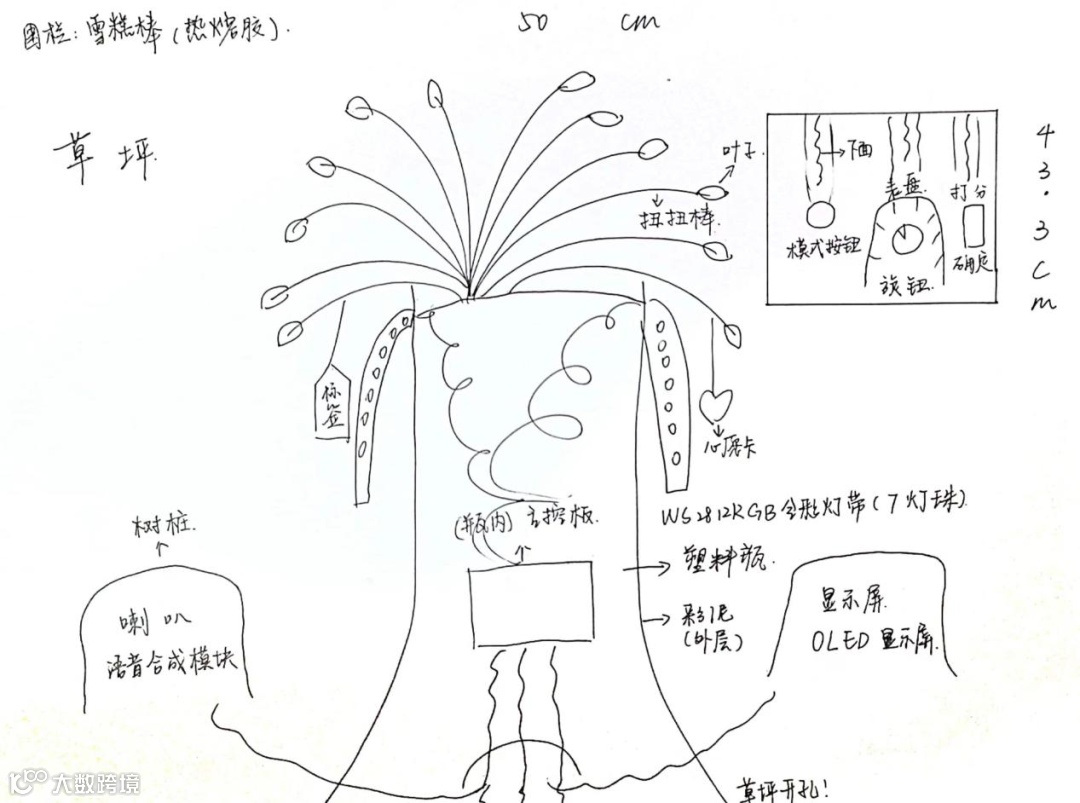 围栏：雪糕棒（热熔胶）.
50 cm
草坪.
43.3cm
叶子.
扭扭棒.
下面
表盘.
打分
模式按钮
旋钮.
确定
标签
心愿卡
WS2812RGB全彩灯带（7灯珠）.
（瓶内）主控板.
树桩.
塑料瓶.
喇叭
语音合成模块
彩泥
（外层）
显示屏.
OLED显示屏.
草坪开孔！
大数跨境